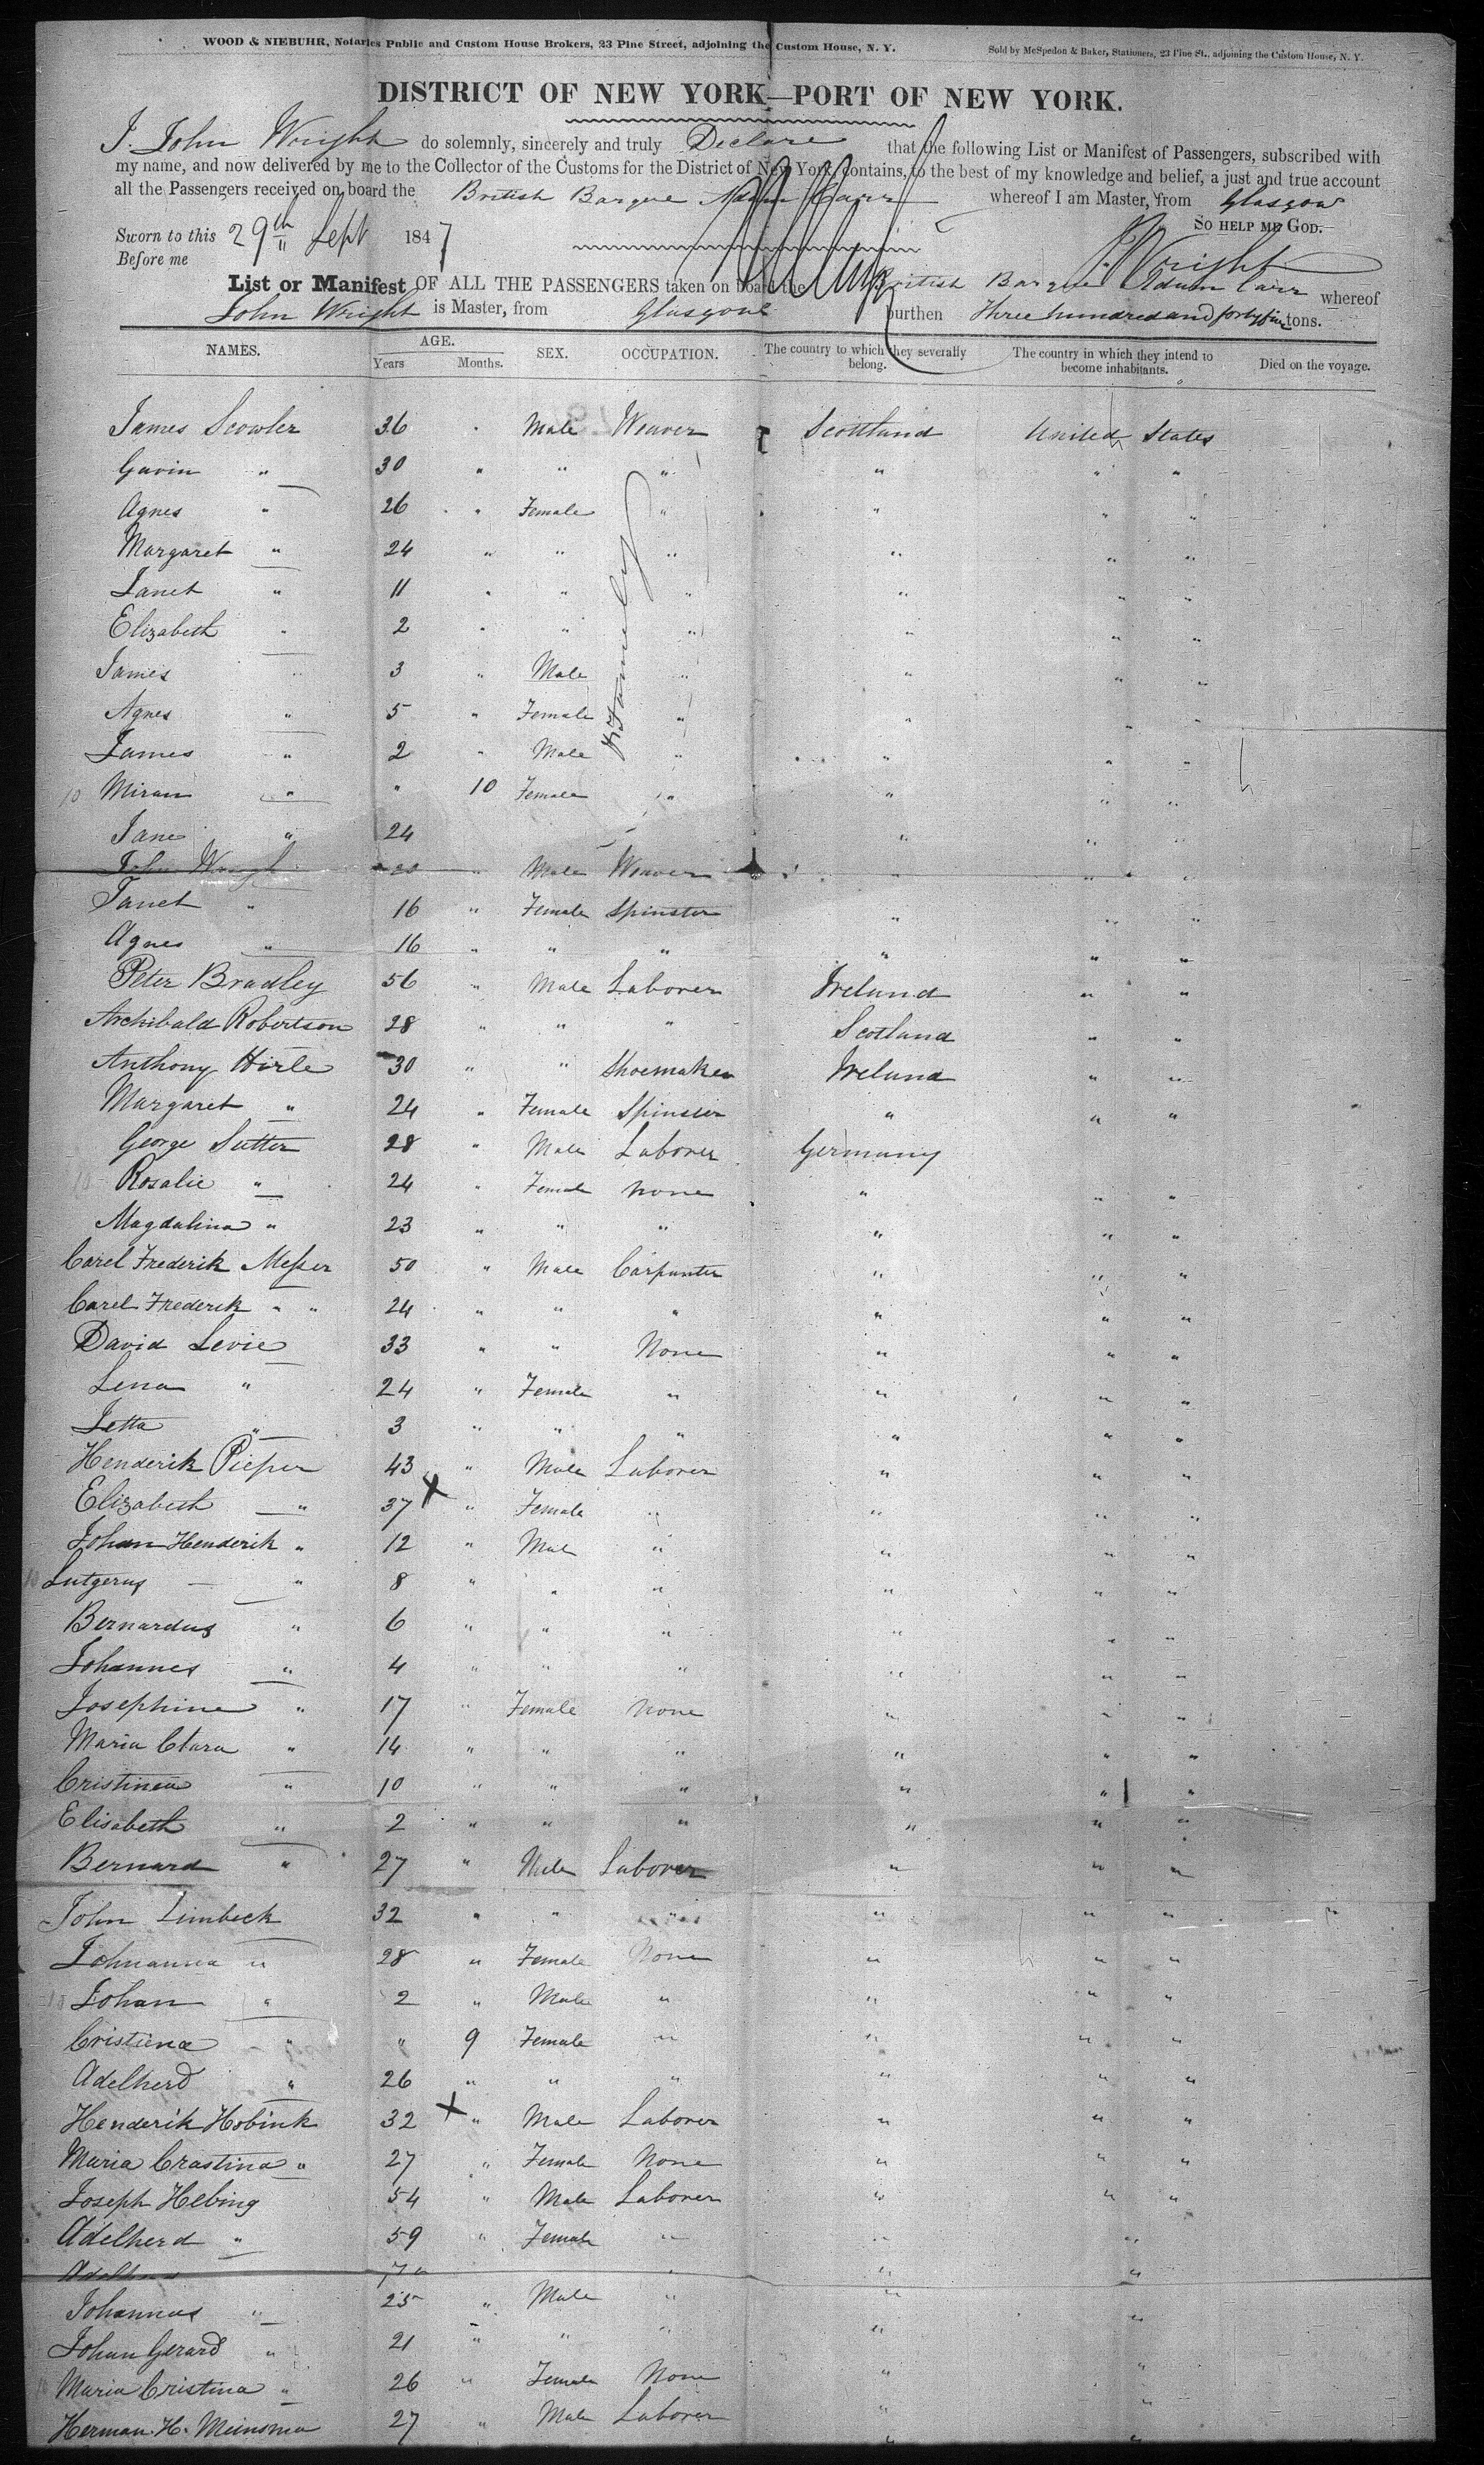 WOOD & NIEBUHR, Notaries Public and Custom House Brokers, 23 Pine Street, adjoining the Custom House, N. Y. Sold by McSpedon & Baker, Stationers, 23 Pine St., adjoining the Custom House, N. Y.
DISTRICT OF NEW YORK—PORT OF NEW YORK.
I, John Wright do solemnly, sincerely and truly Declare that the following List or Manifest of Passengers, subscribed with
my name, and now delivered by me to the Collector of the Customs for the District of New York, contains, to the best of my knowledge and belief, a just and true account
all the Passengers received on board the British Barque Adam Carr whereof I am Master, from Glasgow
Sworn to this 29th Sept 1847 So HELP ME GOD.
Before me J. Wright
List or Manifest OF ALL THE PASSENGERS taken on board the British Barque Adam Carr whereof
John Wright is Master, from Glasgow burthen Three hundred and forty five tons.
NAMES. AGE. Years Months. SEX. OCCUPATION. The country to which they severally belong. The country in which they intend to become inhabitants. Died on the voyage.
James Scowler 36 " Male Weaver Scottland United States
Gavin " 30 " " " " " "
Agnes " 26 " Female " " " "
Margaret " 24 " " " " " "
Janet " 11 " " " " " "
Elizabeth " 2 " " " " " "
James " 3 " Male " " " "
Agnes " 5 " Female " " " "
James " 2 " Male " " " "
10 Miran " " 10 Female " " " "
Jane " 24 " " "
John " Male Weaver " " "
Janet " 16 " Female Spinster " " "
Agnes " 16 " " " " " "
Peter Bradley 56 " Male Laborer Ireland " "
Archibald Robertson 28 " " " Scotland " "
Anthony Hirle 30 " " Shoemaker Ireland " "
Margaret " 24 " Female Spinster " " "
George Sutter 28 " Male Laborer Germany
10 Rosalie " 24 " Female None " " "
Magdalina " 23 " " " " " "
Carel Frederik Messer 50 " Male Carpenter " " "
Carel Frederik " " 24 " " " " " "
David Levie 33 " " None " " "
Lena " 24 " Female " " " "
Jetta " 3 " " " " " "
Henderik Pieper 43 " Male Laborer " " "
Elizabeth " 37 X " Female " " " "
Johan Henderik " 12 " Male " " " "
10 Lutgerus " 8 " " " " " "
Bernardus " 6 " " " " " "
Johannes " 4 " " " " " "
Josephine " 17 " Female None " " "
Maria Clara " 14 " " " " " "
Cristinea " 10 " " " " " "
Elisabeth " 2 " " " " " "
Bernard " 27 " Male Laborer " " "
John Limbeck 32 " " " " " "
Johnanna " 28 " Female None " " "
10 Johan " 2 " Male " " " "
Cristiena " " 9 Female " " " "
Adelherd " 26 " " " " " "
Henderik Hobink 32 X " Male Laborer " " "
Maria Crastina " 27 " Female None " " "
Joseph Hebing 54 " Male Laborer " " "
Adelherd " 59 " Female " " "
Johannes " 25 " Male " " "
Johan Gerard " 21 " " " "
10 Maria Cristina " 26 " Female None " "
Herman H. Meinsma 27 " Male Laborer " "